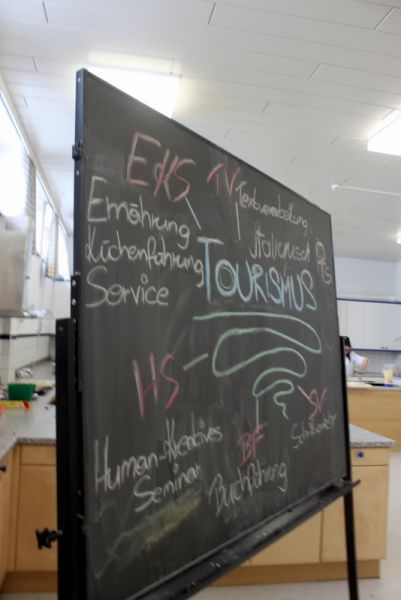 EKS
TV
Textverarbeitung
Ernährung
Küchenführung
Service
Italienisch
TOURISMUS
HS
Human-Kreatives
Seminar
BF
Buchführung
SV